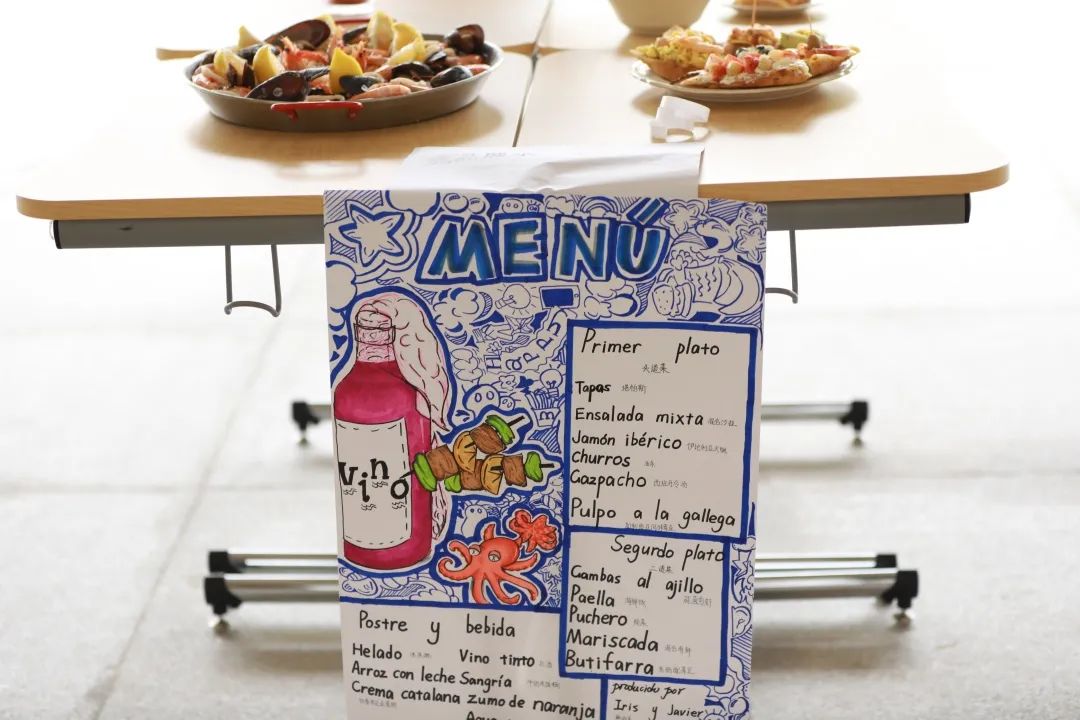 MENÚ
Happy
Vino
Primer plato
头道菜
Tapas 塔帕斯
Ensalada mixta 混合沙拉
Jamón ibérico 伊比利亚火腿
churros 油条
Gazpacho 西班牙冷汤
Pulpo a la gallega
Segundo plato
二道菜
Gambas al ajillo
Paella 海鲜饭
Puchero 炖菜
Mariscada 混合海鲜
Butifarra
Postre y bebida
Helado 冰淇淋 Vino tinto 红酒
Arroz con leche Sangría
Crema catalana zumo de naranja
Agua
producido por
Iris y Javier